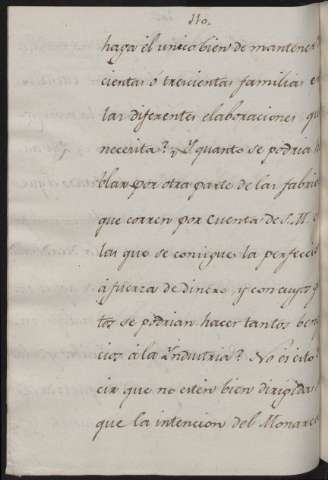 110.
haga el unico bien de mantener
cientas o trescientas familias en
las diferentes elaboraciones que
necesita? Y quanto se podria
blar por otra parte de las fabric
que corren por cuenta de S. M. e
las que se consigue la perfecci
á fuerza de dinero, y con cuyos
tos se podrian hacer tantos bene
cios á la Yndustria? No es esto
cir que no esten bien dirigida
que la intencion del Monarc